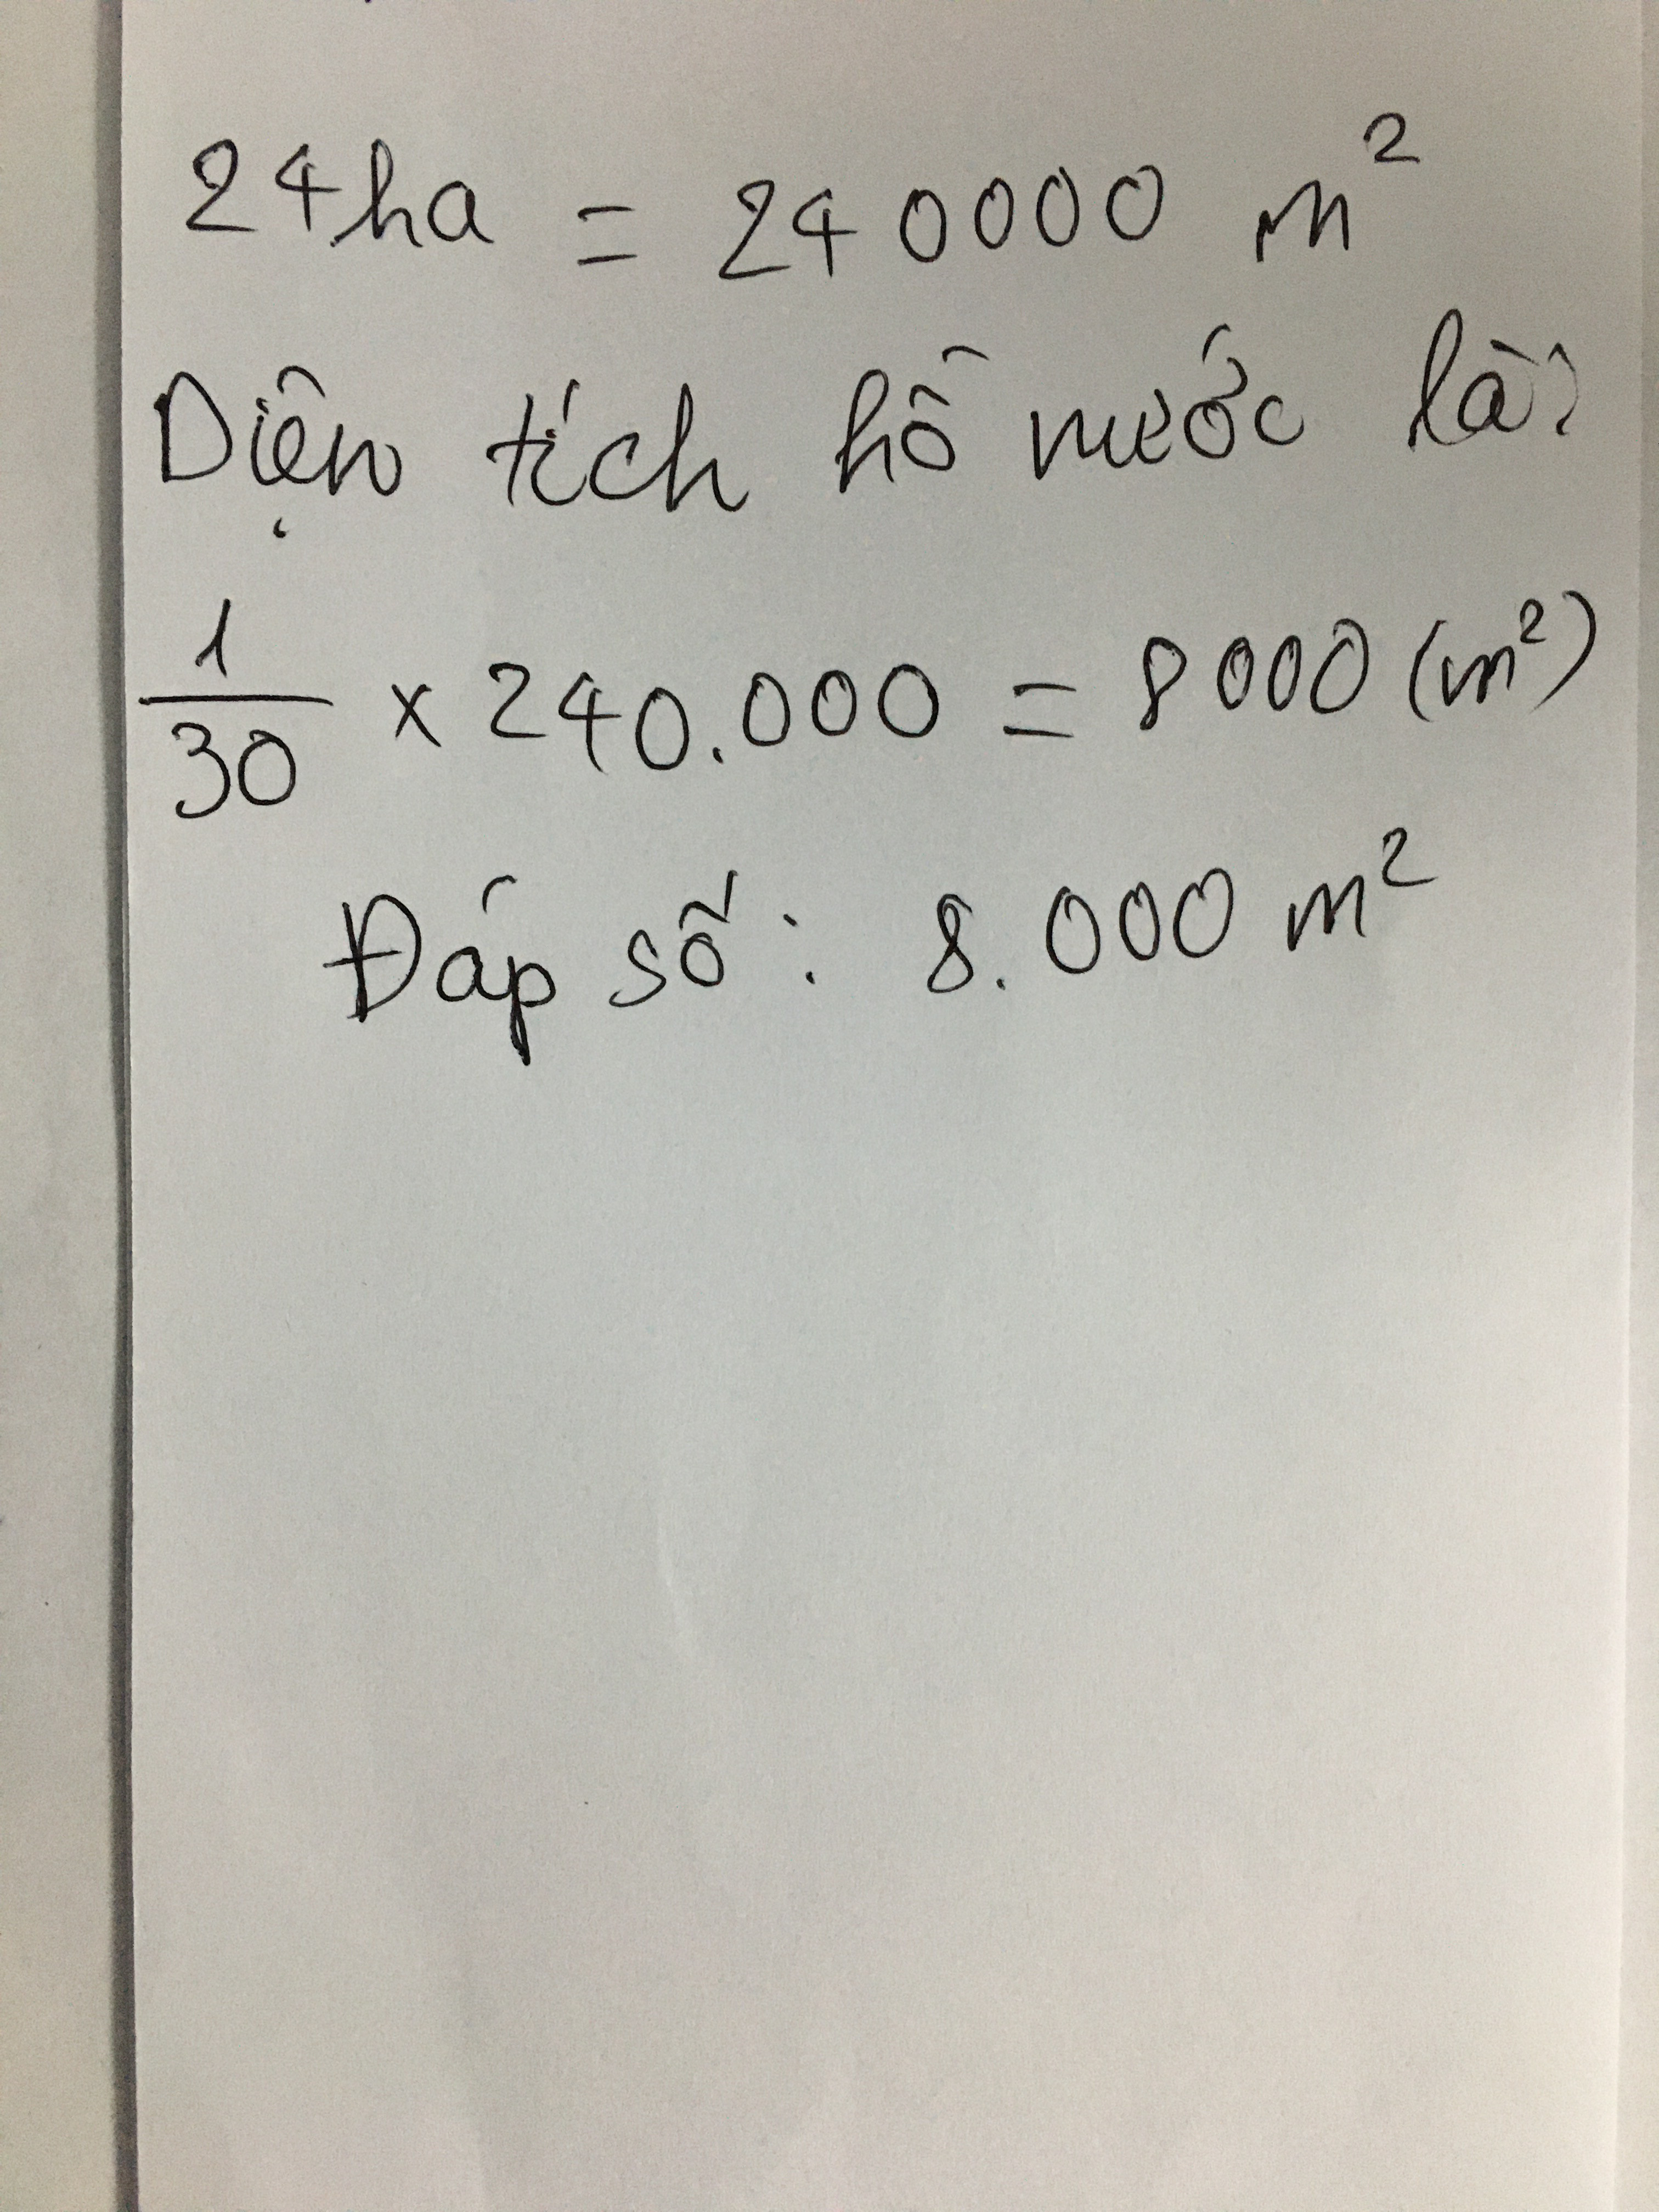 24ha = 240000 m²
Diện tích hồ nước là:
1/30 × 240.000 = 8000 (m²)
Đáp số: 8.000 m²